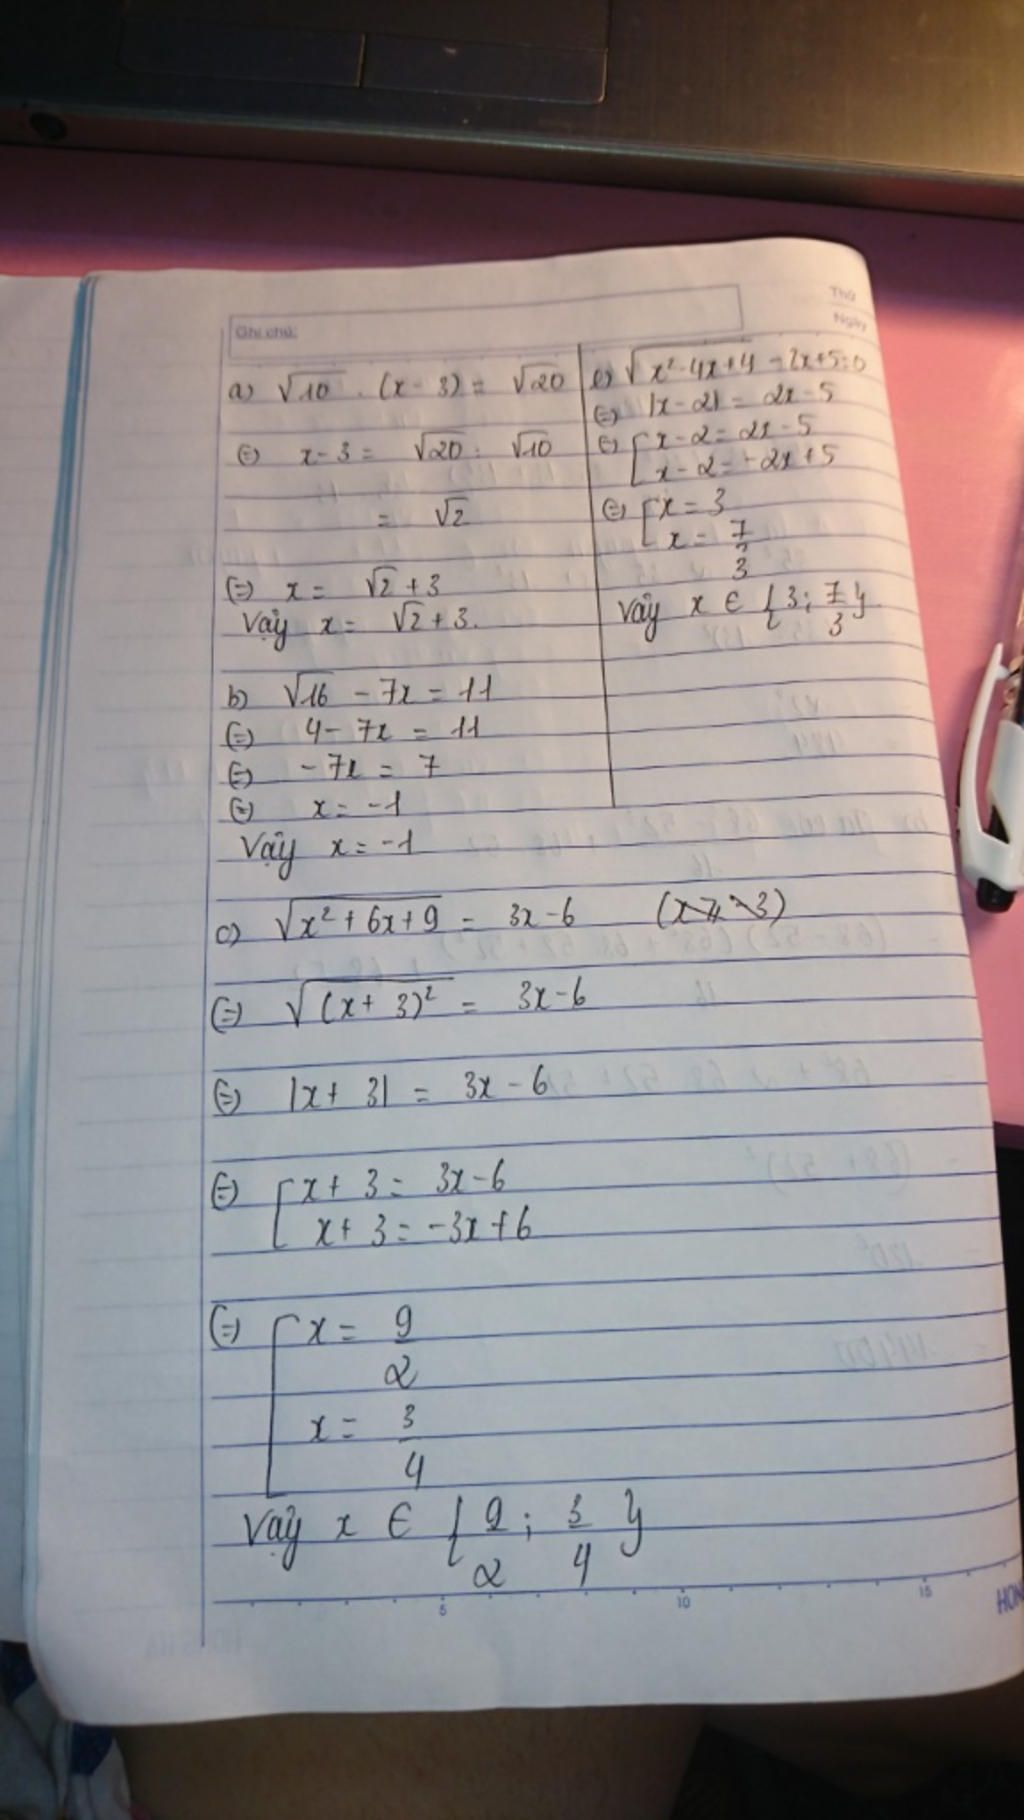 Thứ
Ngày
Ghi chú:
a) √10 . (x - 3) = √20
(=) x - 3 = √20 : √10
= √2
(=) x = √2 + 3
Vậy x = √2 + 3.
b) √16 - 7x = 11
(=) 4 - 7x = 11
(=) - 7x = 7
(=) x = -1
Vậy x = -1
e) √x² - 4x + 4 - 2x + 5 = 0
(=) |x - 2| = 2x - 5
(=) [ x - 2 = 2x - 5
x - 2 = -2x + 5
(=) [ x = 3
x = 7/3
Vậy x ∈ {3; 7/3}
c) √x² + 6x + 9 = 3x - 6
(=) √(x + 3)² = 3x - 6
(=) |x + 3| = 3x - 6
(=) [ x + 3 = 3x - 6
x + 3 = -3x + 6
(=) [ x = 9/2
x = 3/4
Vậy x ∈ {9/2; 3/4}
5 10 15
HON